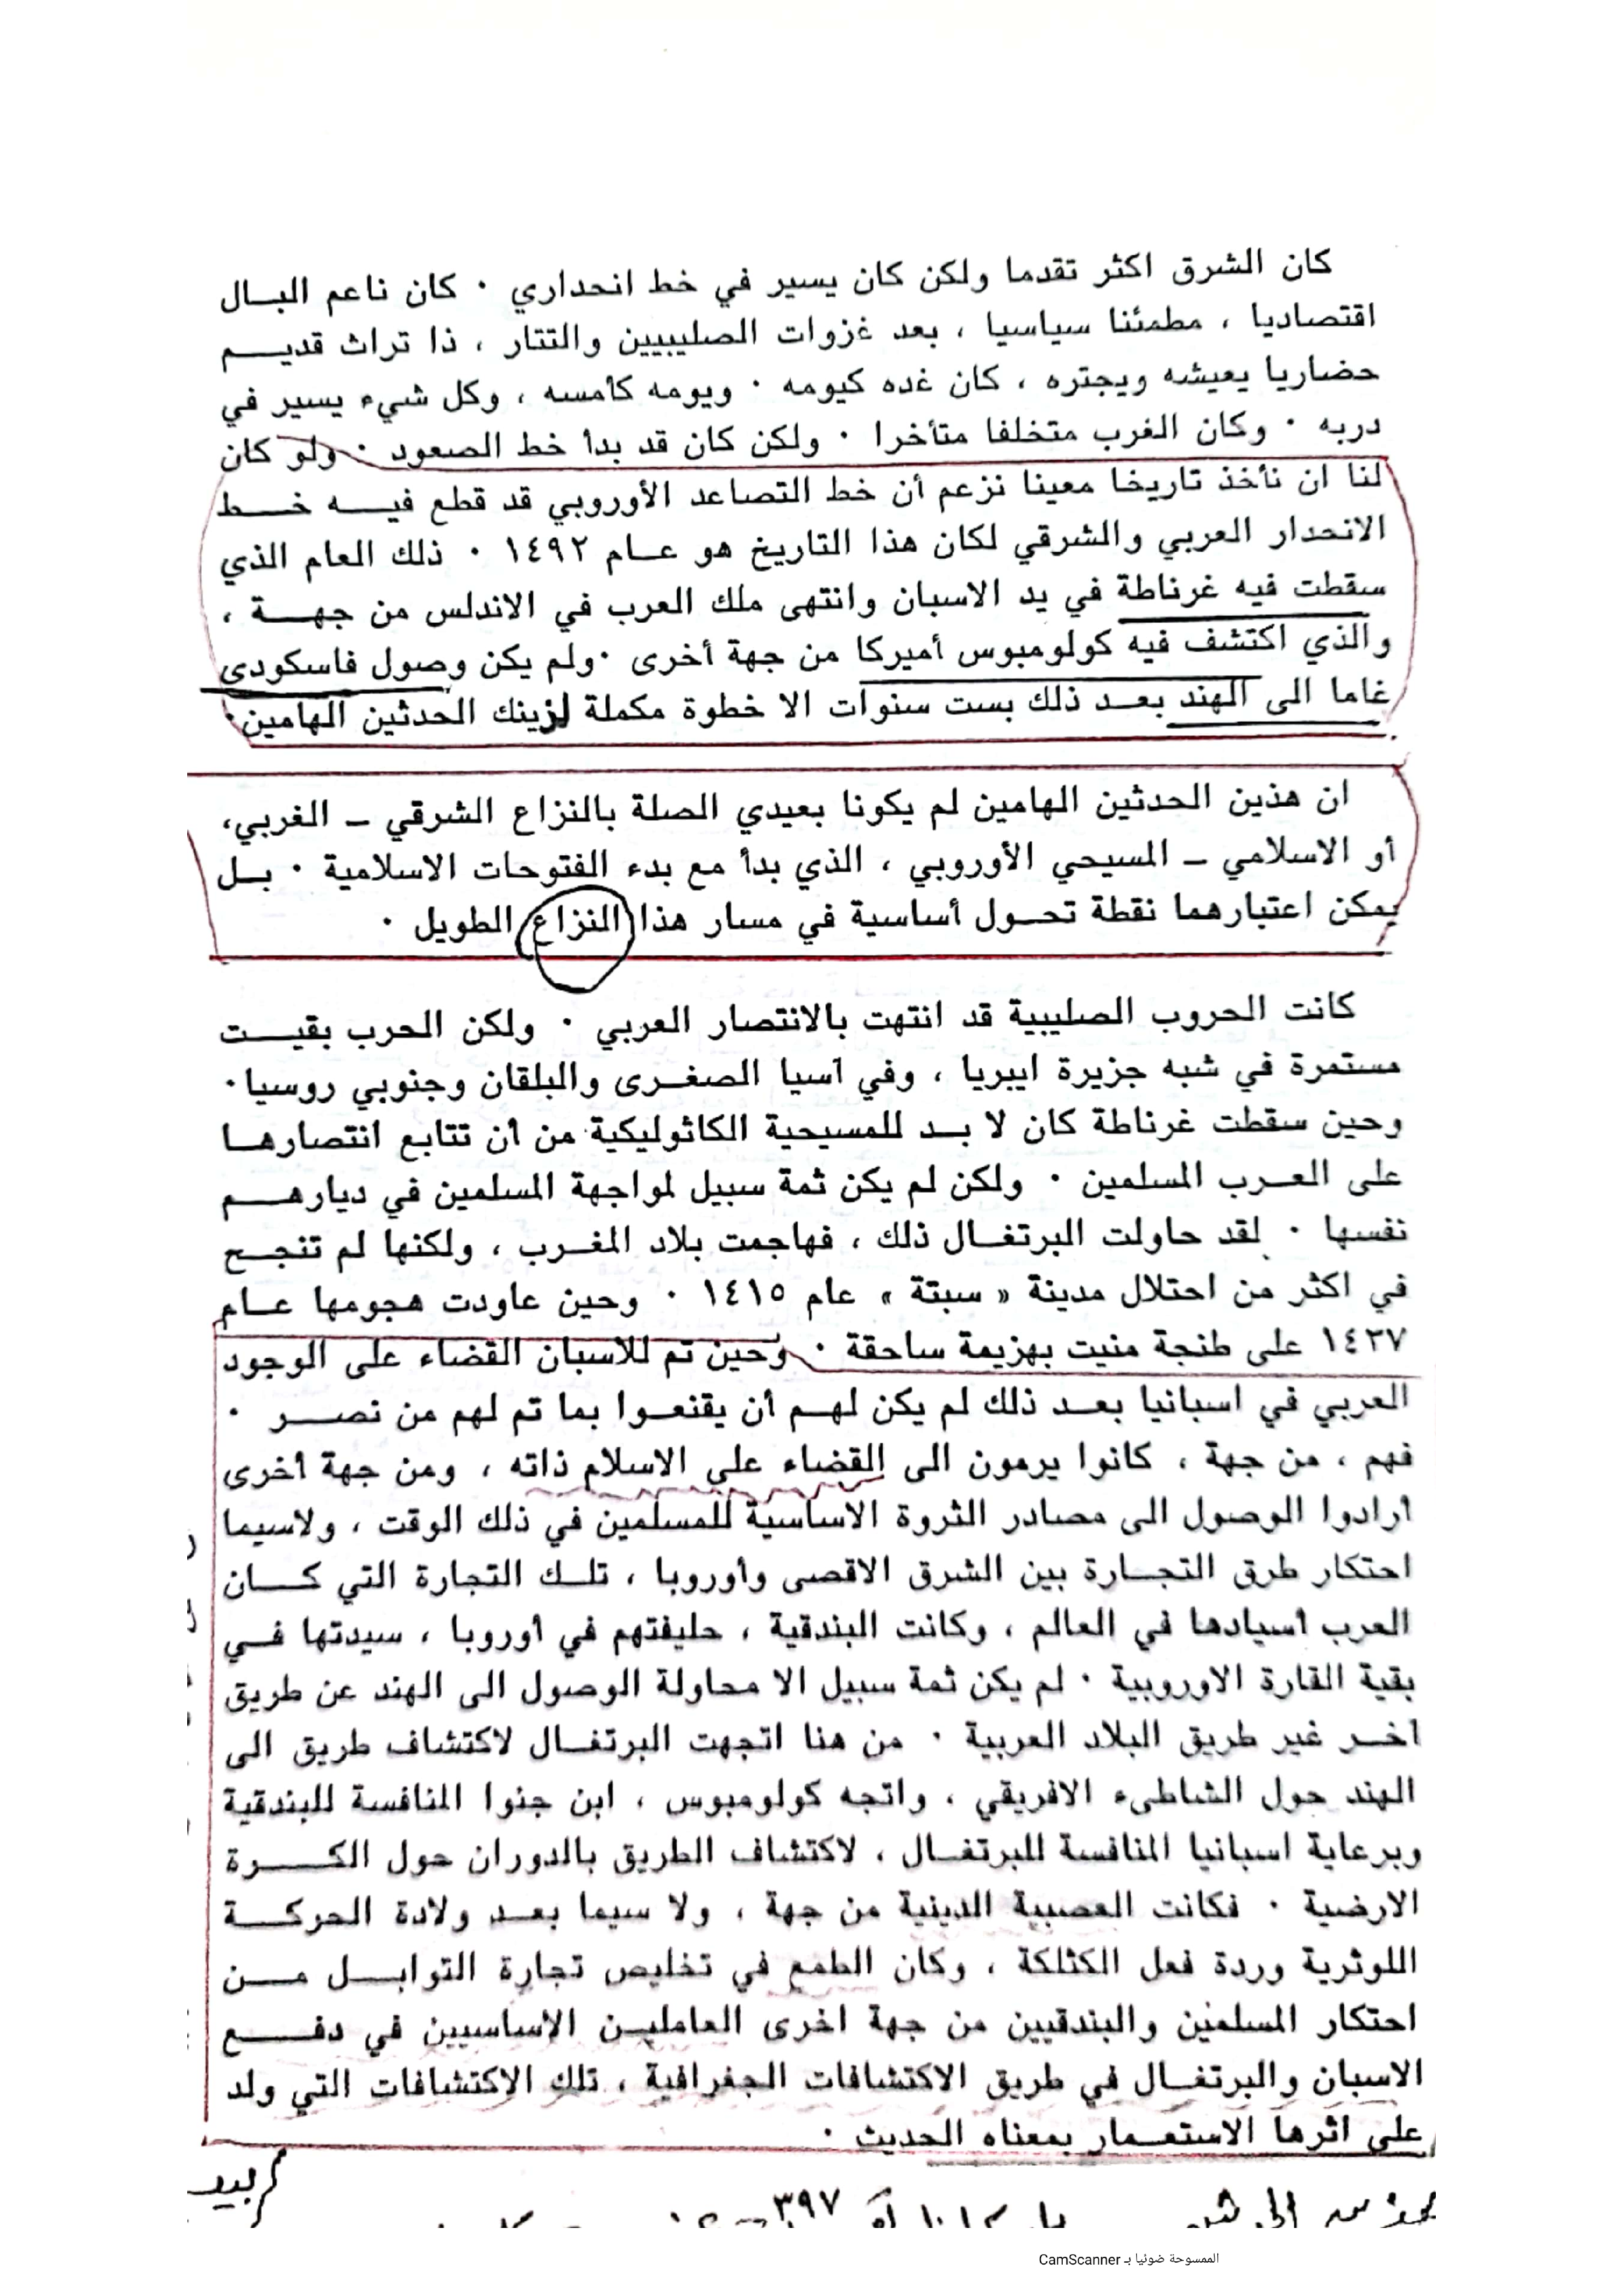 كان الشرق اكثر تقدما ولكن كان يسير في خط انحداري ٠ كان ناعم البـال
اقتصاديا ، مطمئنا سياسيا ، بعد غزوات الصليبيين والتتار ، ذا تراث قديـــم
حضاريا يعيشه ويجتره ، كان غده كيومه ٠ ويومه كأمسه ، وكل شيء يسير في
دربه ٠ وكان الغرب متخلفا متأخرا ٠ ولكن كان قد بدأ خط الصعود ٠ ولو كان
لنا ان نأخذ تاريخا معينا نزعم أن خط التصاعد الأوروبي قد قطع فيـــه خـــط
الانحدار العربي والشرقي لكان هذا التاريخ هو عــام ١٤٩٢ ٠ ذلك العام الذي
سقطت فيه غرناطة في يد الاسبان وانتهى ملك العرب في الاندلس من جهـــة ،
والذي اكتشف فيه كولومبوس أميركا من جهة أخرى ٠ولم يكن وصول فاسكودى
غاما الى الهند بعـد ذلك بست سنوات الا خطوة مكملة لزينك الحدثين الهامين٠
ان هذين الحدثين الهامين لم يكونا بعيدي الصلة بالنزاع الشرقي ــ الغربي،
أو الاسلامي ــ المسيحي الأوروبي ، الذي بدأ مع بدء الفتوحات الاسلامية ٠ بـل
يمكن اعتبارهما نقطة تحـول أساسية في مسار هذا النزاع الطويل ٠
كانت الحروب الصليبية قد انتهت بالانتصار العربي ٠ ولكن الحرب بقيـــت
مستمرة في شبه جزيرة ايبريا ، وفي آسيا الصغـرى والبلقان وجنوبي روسيا٠
وحين سقطت غرناطة كان لا بــد للمسيحية الكاثوليكية من أن تتابع انتصارهـا
على العـرب المسلمين ٠ ولكن لم يكن ثمة سبيل لمواجهة المسلمين في ديارهـــم
نفسها ٠ لقد حاولت البرتغـال ذلك ، فهاجمت بلاد المغـرب ، ولكنها لم تنجـح
في اكثر من احتلال مدينة « سبتة » عام ١٤١٥ ٠ وحين عاودت هجومها عـام
١٤٣٧ على طنجة منيت بهزيمة ساحقة ٠ وحين تم للاسبان القضاء على الوجود
العربي في اسبانيا بعـد ذلك لم يكن لهـم أن يقنعـوا بما تم لهم من نصـــر ٠
فهم ، من جهة ، كانوا يرمون الى القضاء على الاسلام ذاته ، ومن جهة أخرى
أرادوا الوصول الى مصادر الثروة الاساسية للمسلمين في ذلك الوقت ، ولاسيما
احتكار طرق التجـارة بين الشرق الاقصى وأوروبا ، تلـك التجارة التي كـــان
العرب أسيادها في العالم ، وكانت البندقية ، حليفتهم في أوروبا ، سيدتها فـي
بقية القارة الاوروبية ٠ لم يكن ثمة سبيل الا محاولة الوصول الى الهند عن طريق
آخـر غير طريق البلاد العربية ٠ من هنا اتجهت البرتغـال لاكتشاف طريق الى
الهند حول الشاطىء الافريقي ، واتجه كولومبوس ، ابن جنوا المنافسة للبندقية
وبرعاية اسبانيا المنافسة للبرتغـال ، لاكتشاف الطريق بالدوران حول الكـــرة
الارضية ٠ فكانت العصبية الدينية من جهة ، ولا سيما بعـد ولادة الحركـــة
اللوثرية وردة فعل الكثلكة ، وكان الطمع في تخليص تجارة التوابـــل مـــن
احتكار المسلمين والبندقيين من جهة اخرى العامليـن الاساسيين في دفـــع
الاسبان والبرتغـال في طريق الاكتشافات الجغرافية ، تلك الاكتشافات التي ولد
على اثرها الاستعـمار بمعناه الحديث ٠
٣٩٧
الممسوحة ضوئيا بـ CamScanner